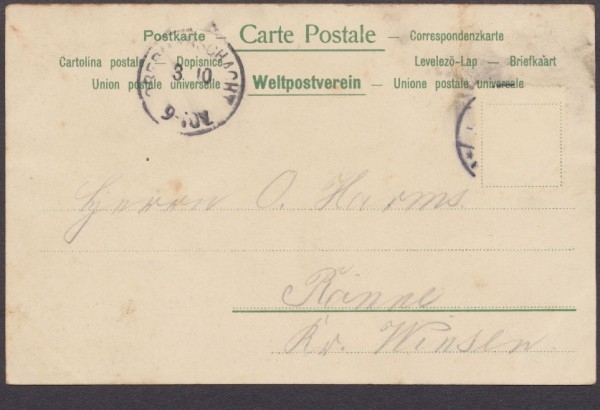 Postkarte Carte Postale — Correspondenzkarte
Cartolina postale — Dopisnice Levelezö-Lap — Briefkaart
Union postale universelle Weltpostverein — Unione postale universale
3. 10
9-10V.
Herrn O. Harms
Rönne
Kr. Winsen.